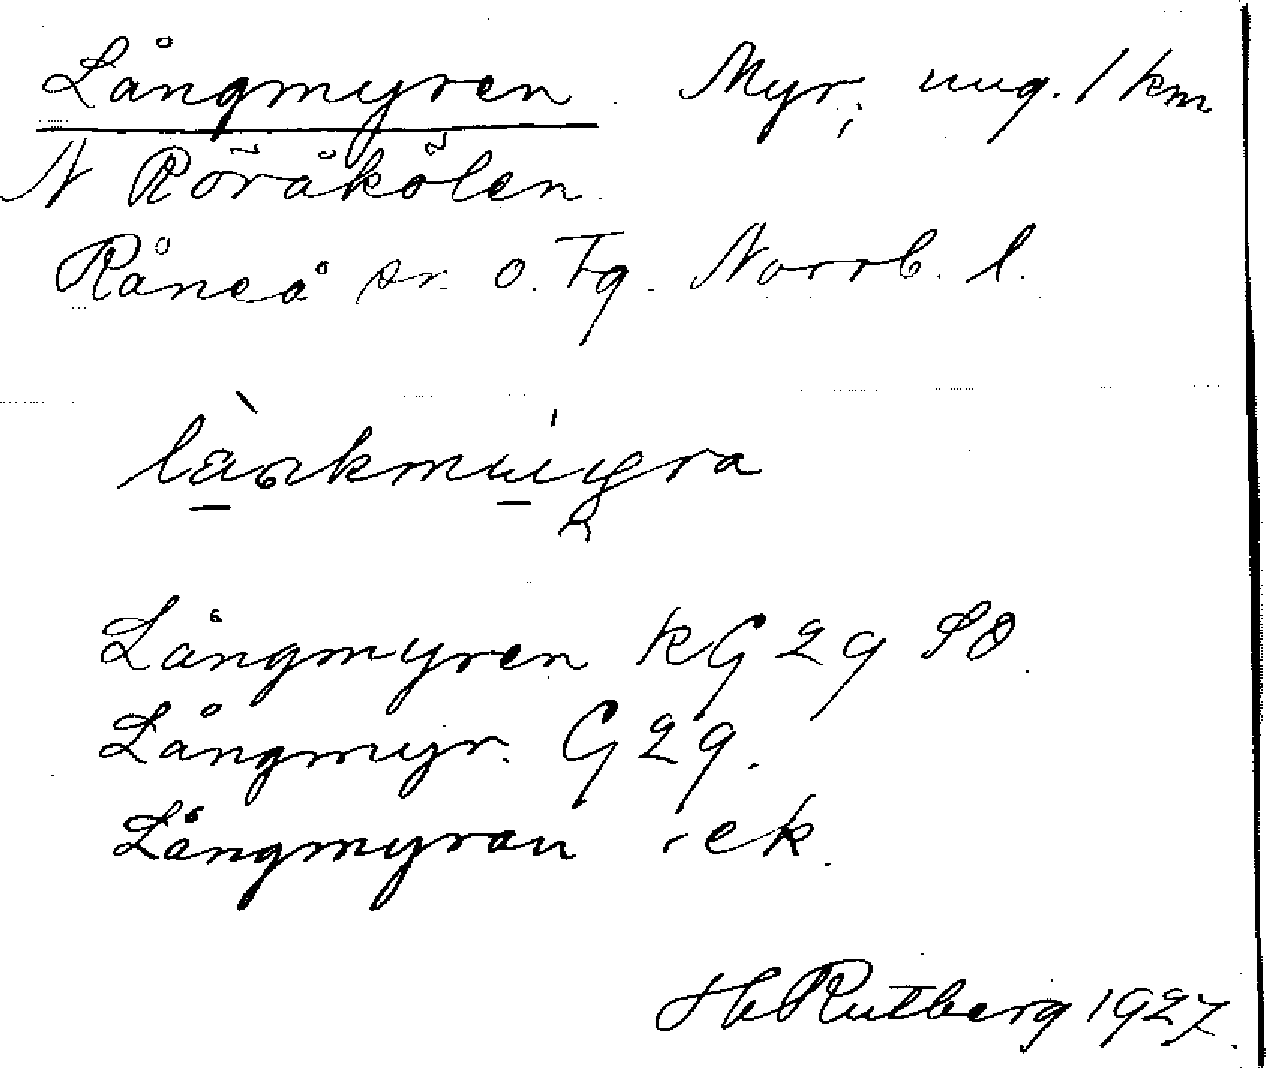 Långmyren. Myr, ung. 1 km
N Röråkölen
Råneå sr. o. Tg. Norrb. l.
Långmyren kG 29 SO
Långmyr. G 29.
Långmyran ek.
H Rutberg 1927.